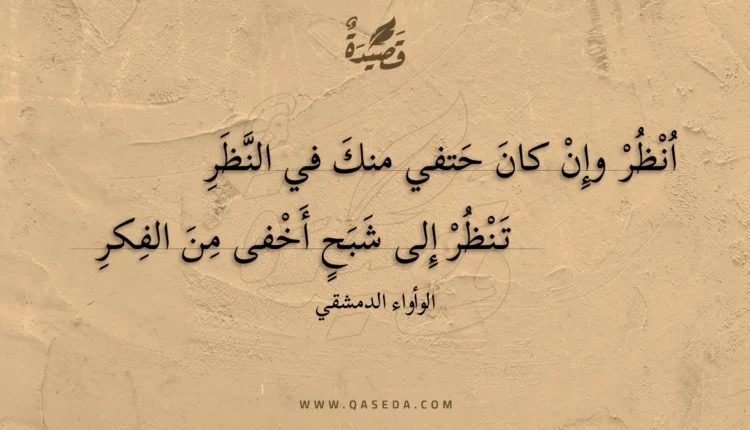 قَصِيدَةٌ
اُنْظُرْ وإِنْ كانَ حَتفي منكَ في النَّظَرِ
تَنْظُرْ إِلى شَبَحٍ أَخْفى مِنَ الفِكرِ
الوأواء الدمشقي
WWW.QASEDA.COM